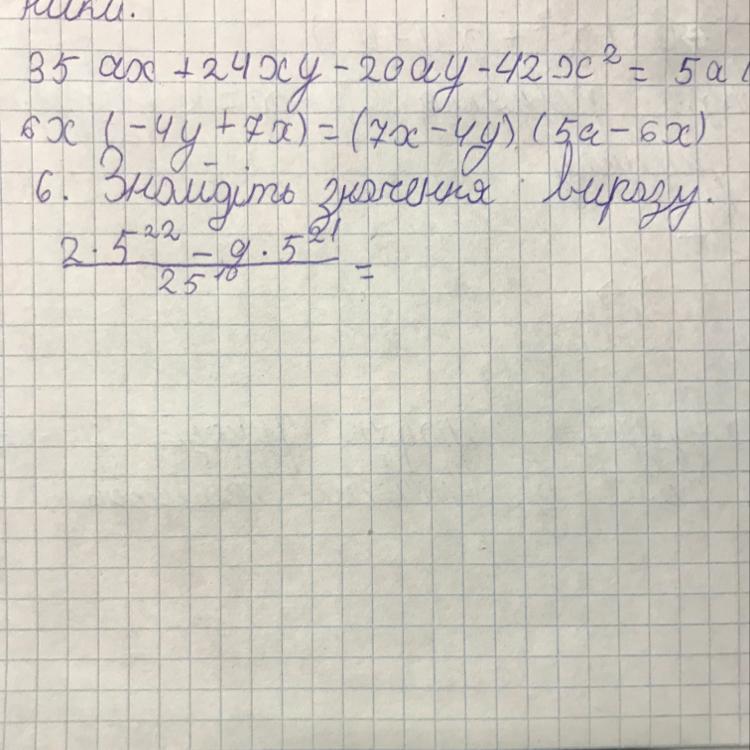 35 ax + 24xy - 20ay - 42x² = 5a(
6x (-4y + 7x) = (7x - 4y) (5a - 6x)
6. Знайдіть значення виразу.
2 · 5²² - 9 · 5²¹
25¹⁰ =